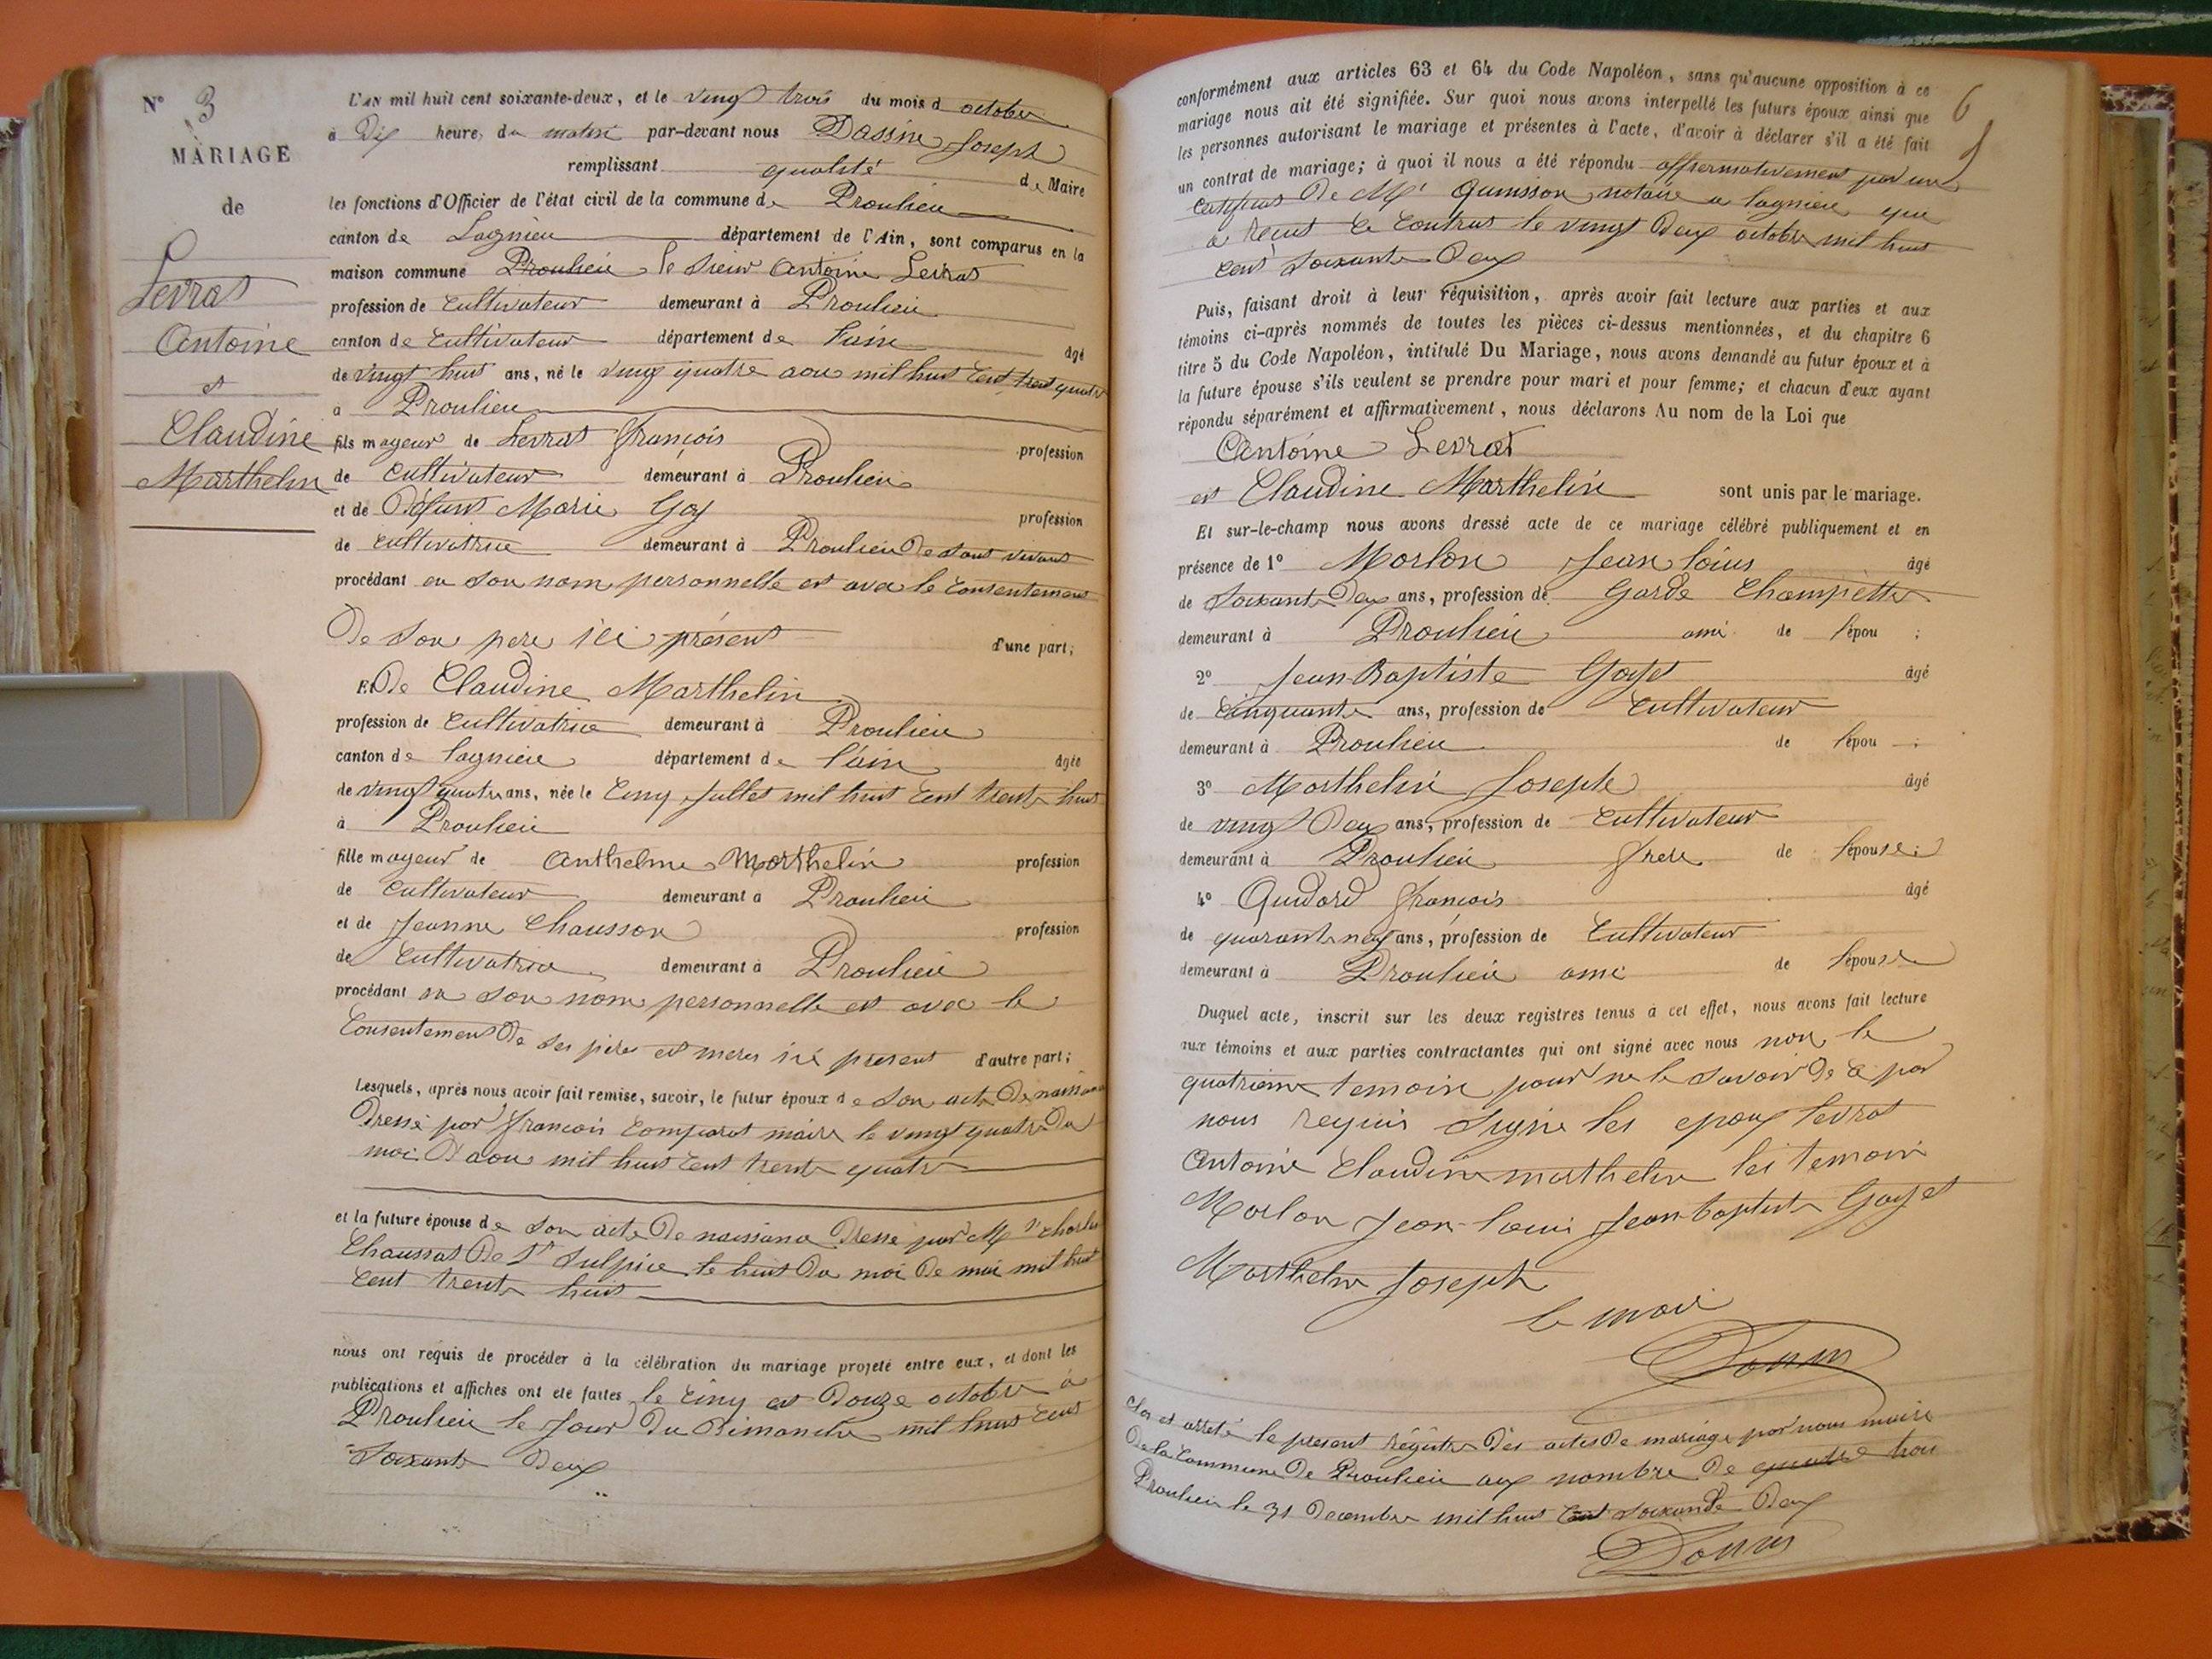 N° 3
MARIAGE
de
Levrat
Antoine
et
Claudine
Marthelin
L'AN mil huit cent soixante-deux, et le vingt trois du mois d octobre
à Dix heure, du matin par-devant nous Dassin Joseph
remplissant qualité de Maire
les fonctions d'Officier de l'état civil de la commune de Proulieu
canton de Lagnieu département de l'Ain, sont comparus en la
maison commune Proulieu le sieur Antoine Levrat
profession de cultivateur demeurant à Proulieu
canton de cultivateur département de l'ain âgé
de vingt huit ans, né le vingt quatre aou mil huit cent trent quatre
à Proulieu
fils mayeur de Levrat françois profession
de cultivateur demeurant à Proulieu
et de Défunt Marie Goy profession
de cultivatrice demeurant à Proulieu de sont vivant
procédant en son nom personnelle et avec le consentement
De son pere ici présent d'une part;
Et De Claudine Marthelin
profession de cultivatrice demeurant à Proulieu
canton de lagnieu département de l'ain âgée
de vingt quatre ans, née le cinq Jullet mil huit cent trente huit
à Proulieu
fille mayeur de Anthelme Marthelin profession
de cultivateur demeurant à Proulieu
et de Jeanne Chausson profession
de cultivatrice demeurant à Proulieu
procédant en son nom personnelle et avec le
consentement De ses père et mere ici present d'autre part;
Lesquels, après nous avoir fait remise, savoir, le futur époux de son acte De naissance
Dressé par françois Comparot maire le vingt quatre du
moi D'aou mil huit cent trente quatre
et la future épouse de son acte De naissance Dressé par Mr Charles
Chaussat De St Sulpice le huit du moi De mai mil huit
cent trente huit
nous ont requis de procéder à la célébration du mariage projeté entre eux, et dont les
publications et affiches ont été faites le cinq et Douze octobre à
Proulieu le Jour Du Dimanche mil huit cent
soixante Deux
6
conformément aux articles 63 et 64 du Code Napoléon, sans qu'aucune opposition à ce
mariage nous ait été signifiée. Sur quoi nous avons interpellé les futurs époux ainsi que
les personnes autorisant le mariage et présentes à l'acte, d'avoir à déclarer s'il a été fait
un contrat de mariage; à quoi il nous a été répondu affirmativement par un
De Mr Quinsson notaire a lagnieu que
a reçut ce contrat le vingt Deux octobre mil huit
cent soixante Deux
Puis, faisant droit à leur réquisition, après avoir fait lecture aux parties et aux
témoins ci-après nommés de toutes les pièces ci-dessus mentionnées, et du chapitre 6
titre 5 du Code Napoléon, intitulé Du Mariage, nous avons demandé au futur époux et à
la future épouse s'ils veulent se prendre pour mari et pour femme; et chacun d'eux ayant
répondu séparément et affirmativement, nous déclarons Au nom de la Loi que
Antoine Levrat
et Claudine Marthelin sont unis par le mariage.
Et sur-le-champ nous avons dressé acte de ce mariage célébré publiquement et en
présence de 1° Morlon Jean loius âgé
de soixante Deux ans, profession de Garde Champètte
demeurant à Proulieu ami de l'épou ;
2° Jean-Baptiste Goyet âgé
de cinquante ans, profession de cultivateur
demeurant à Proulieu de l'épou ;
3° Marthelin Joseph âgé
de vingt Deux ans, profession de cultivateur
demeurant à Proulieu frere de l'épouse ;
4° Quidord françois âgé
de quarante neuf ans, profession de cultivateur
demeurant à Proulieu ami de l'épouse
Duquel acte, inscrit sur les deux registres tenus à cet effet, nous avons fait lecture
aux témoins et aux parties contractantes qui ont signé avec nous non le
quatrieme temoin pour ne le savoir De ce par
nous requis signé les epoux levrat
Antoine Claudine marthelin les temoin
Morlon Jean-louis Jean-baptiste Goyet
Marthelin Joseph
le maire
Dassin
Clos et arreté le present régistre Des actes De mariage par nous maire
De la Commune De Proulieu aux nombre De quatre troi
Proulieu le 31 Decembre mil huit cent soixante Deux
Dassin